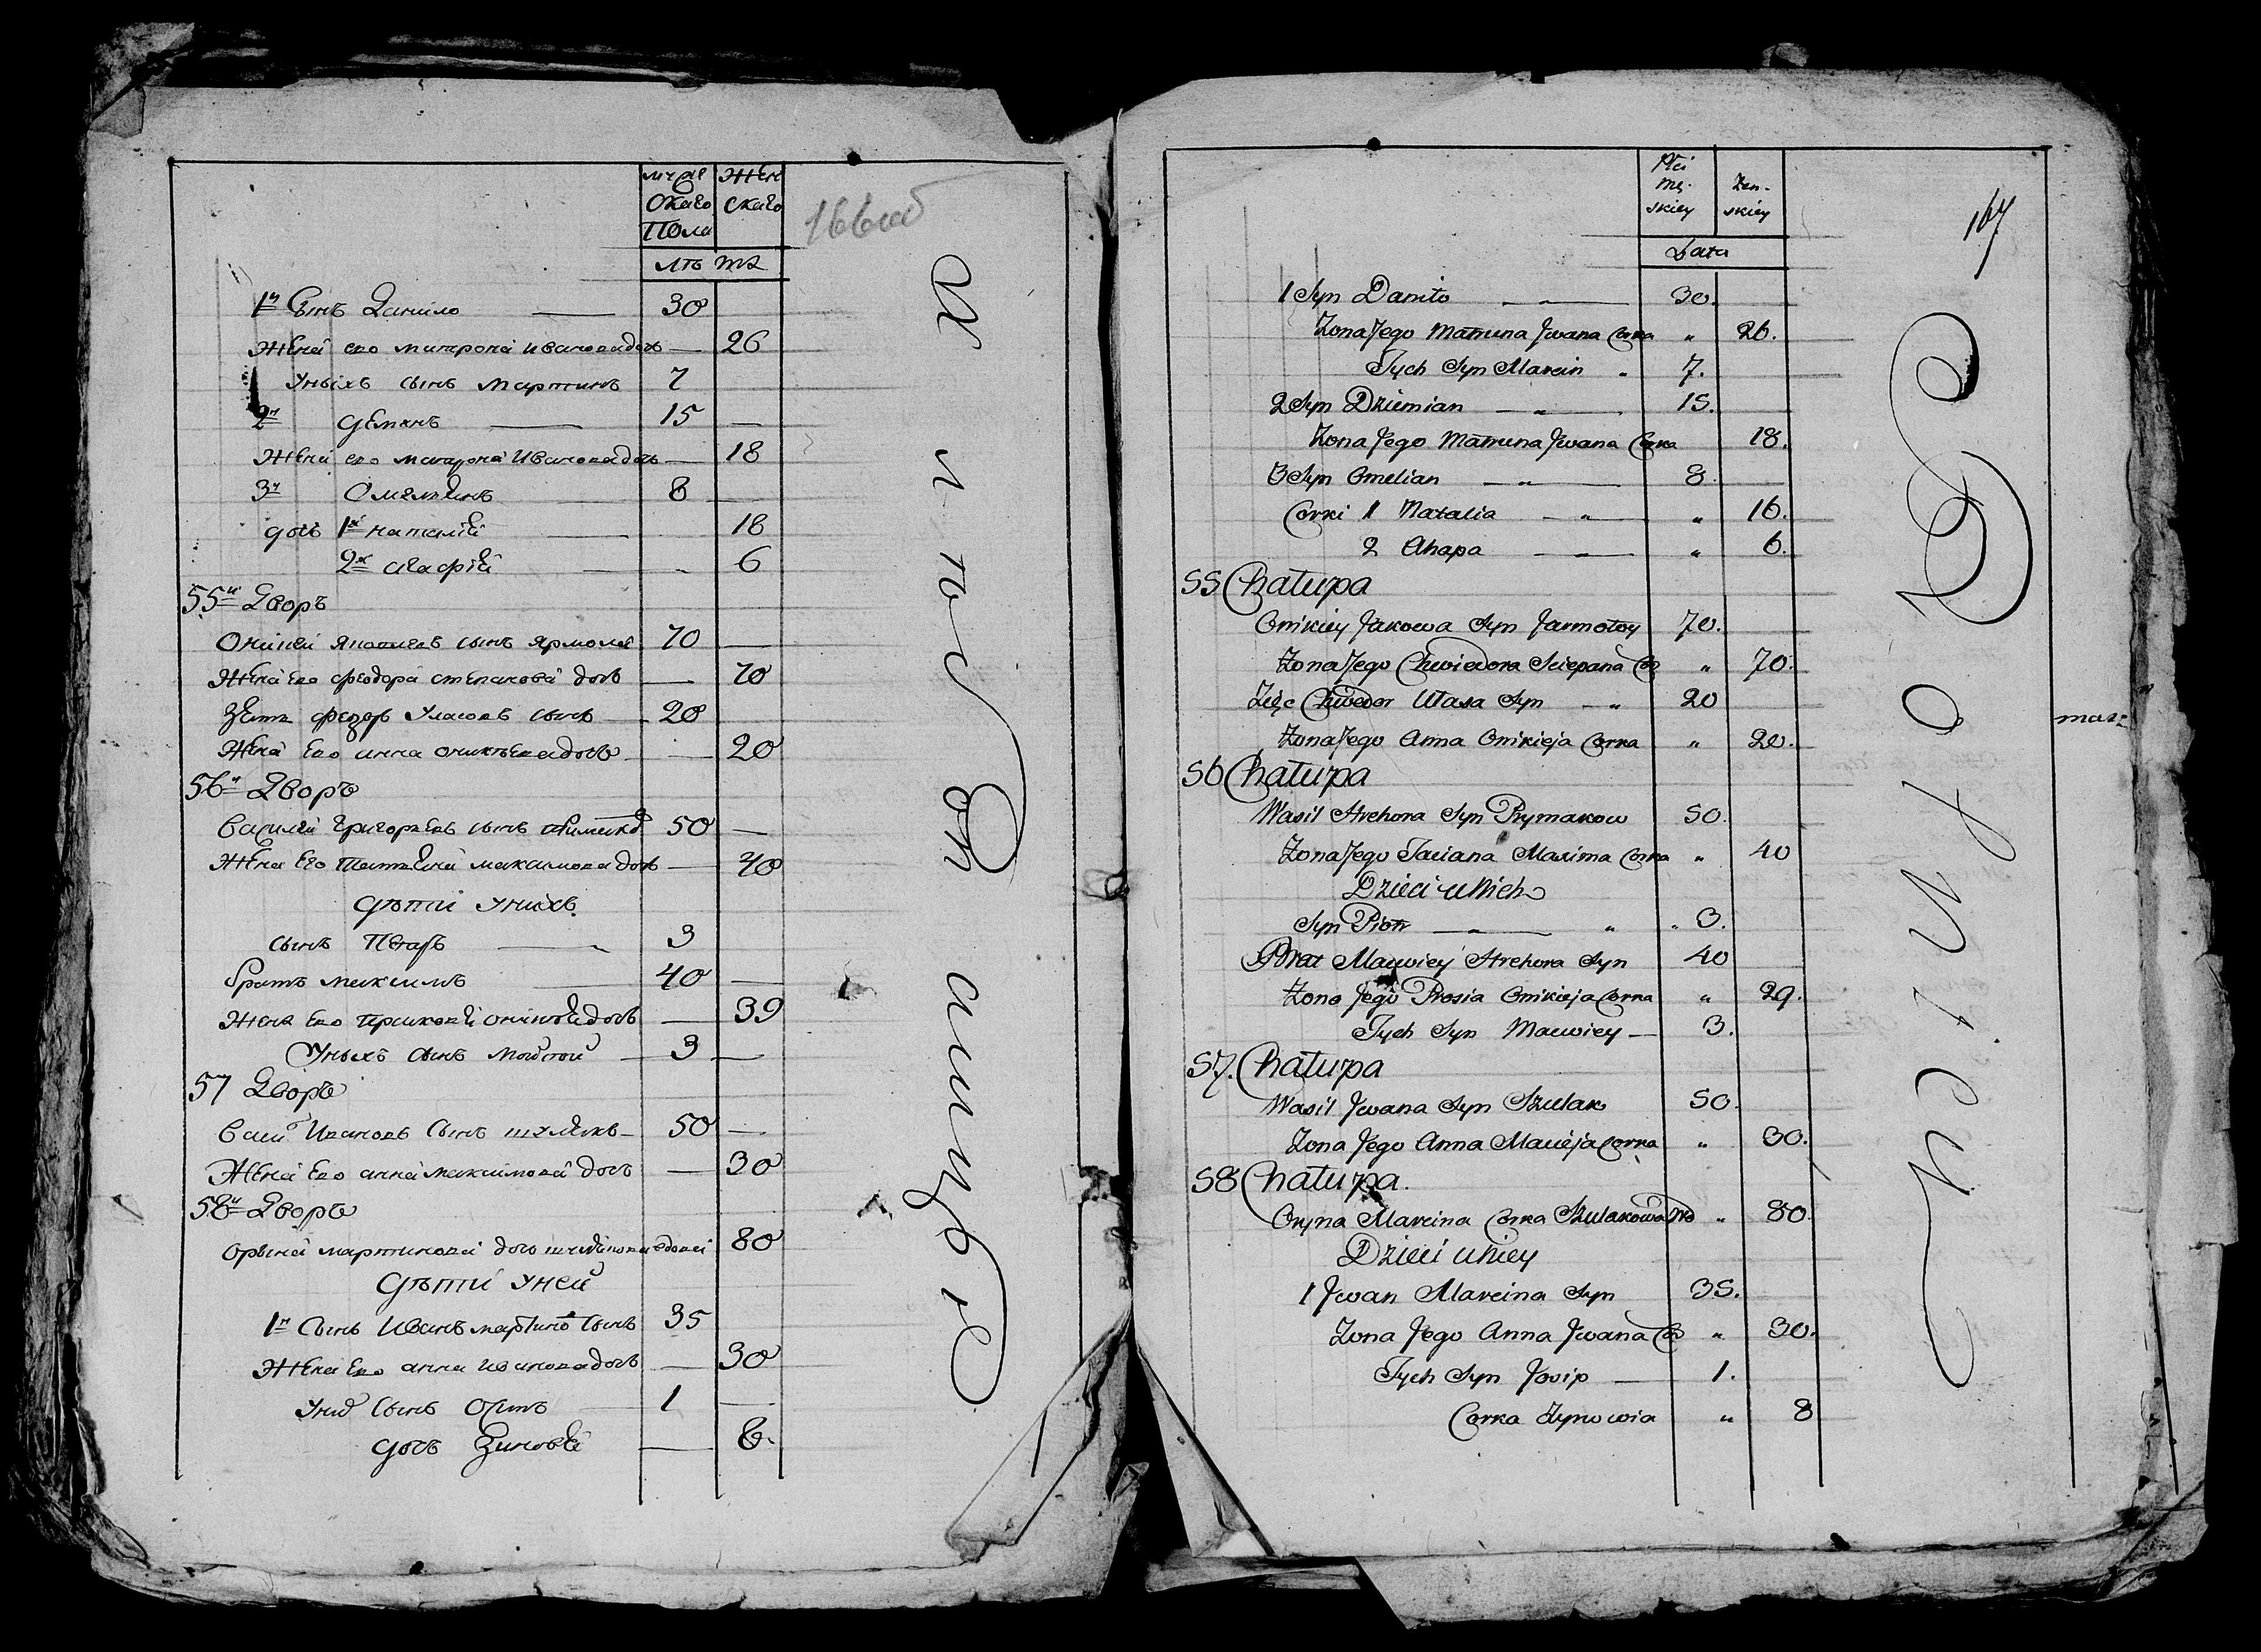 муже Жен
скаго скаго
Пола
лѣ та
166об
1й Сынъ Данило 30
Жена ево матрона иванова дочь 26
Уныхъ сынъ мартинъ 7
2й демянъ 15
Жена ево матрона Иванова дочь 18
3й Омельянъ 8
дочь 1я наталія 18
2я агафія 6
55й Дворъ
Оникей яковлевъ сынъ ярмолой 70
Жена ево феодора степанова дочь 70
Зять федоръ Уласовъ сынъ 20
Жена Ево анна оникѣева дочь 20
56й Дворъ
Василей Григорьевъ сынъ 50
Жена Его Татьяна максимова дочь 40
дѣти Унихъ
сынъ Петръ 3
братъ максимъ 40
Жена Ево 39
Уныхъ сынъ 3
57 Дворъ
Васи Ивановъ Сынъ шулякъ 50
Жена Ево анна максимова дочь 30
58й Дворъ
орына мартинова дочь 80
дѣти Уней
1й Сынъ Иванъ сынъ 35
Жена Ево анна иванова дочь 30
Уных Сынъ Осипъ 1
дочь Зиновія 8
167
Płci
mę- Żen-
skiey skiey
Lata
1 Syn Daniło 30.
Żona Jego Matruna Jwana Corka " 26.
Tych Syn Marcin " 7.
2 Syn Dziemian " 15.
Żona Jego Matruna Jwana Corka 18.
3 Syn Omelian " 8.
Corki 1 Natalia " " 16.
2 Ahapa " 6.
55 Chałupa
Onikiey Jakowa Syn Jarmołoy 70.
Żona Jego Chwiedora Sciepana Co " 70.
Zięc Chwedor Ułasa Syn " 20
Żona Jego Anna Onikieja Corka " 20.
56 Chałupa
Wasil Hrehora Syn Prymakow 50.
Żona Jego Taciana Maxima Corka " 40
Dzieci u Nich
Syn Piotr " " " 3.
Brat Macwiey Hrehora Syn 40
Żona Jego Prosia Onikieja Corka " 29.
Tych Syn Macwiey 3.
57. Chałupa
Wasil Jwana Syn Szulak 50.
Żona Jego Anna Macieja Corka " 30.
58 Chałupa.
Oryna Marcina Corka Szulakowa Wd " 80.
Dzieci u Niey
1 Jwan Marcina Syn 35.
Żona Jego Anna Jwana Co " 30.
Tych Syn Josip 1.
Corka Zynowia " 8